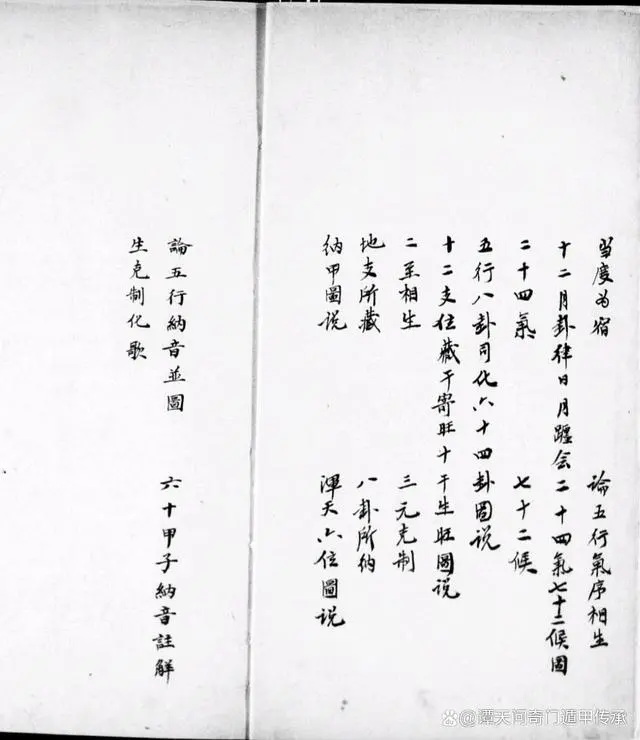 当度为宿 論五行氣序相生
十二月卦律日月躔会二十四氣七十二候圖
二十四氣 七十二候
五行八卦司化六十四卦圖说
十二支位藏干寄旺十干生旺圖说
二至相生 三元克制
地支所藏 八卦所纳
纳甲圖说 渾天六位圖说
論五行納音並圖 六十甲子納音註解
生克制化歌
@谭天河奇门遁甲传承